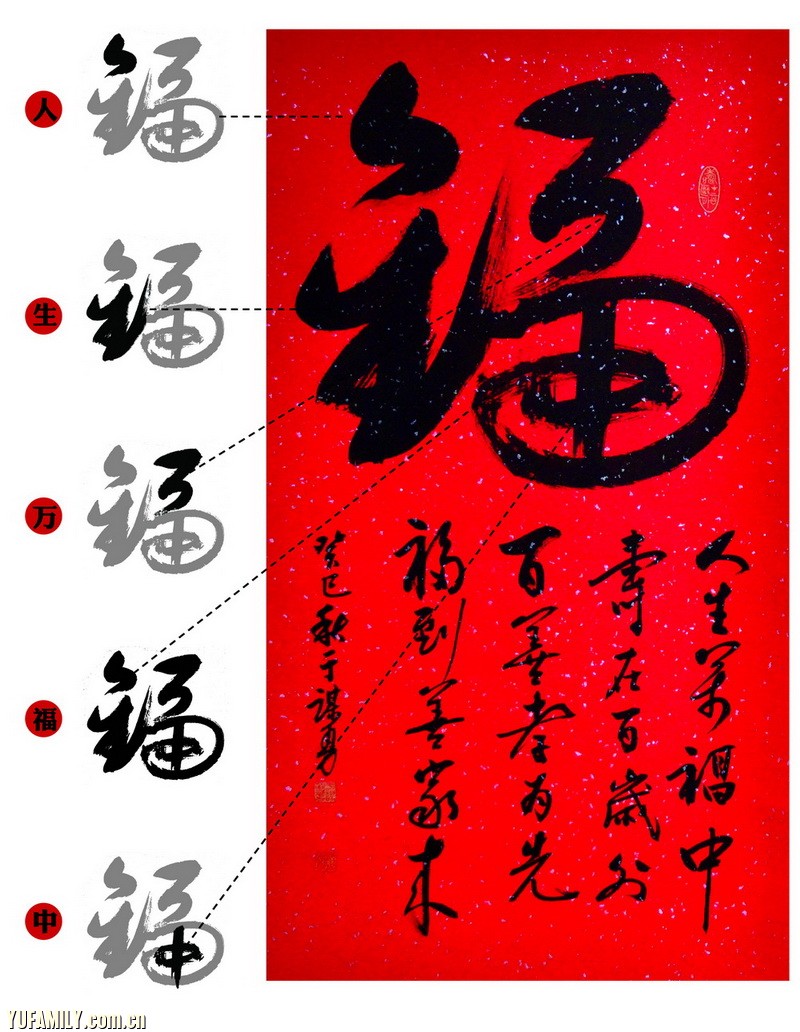 人
生
万
福
中
福
人生萬福中
壽在百歲外
百善孝為先
福到善家来
癸巳秋于謀勇
YUFAMILY.com.cn